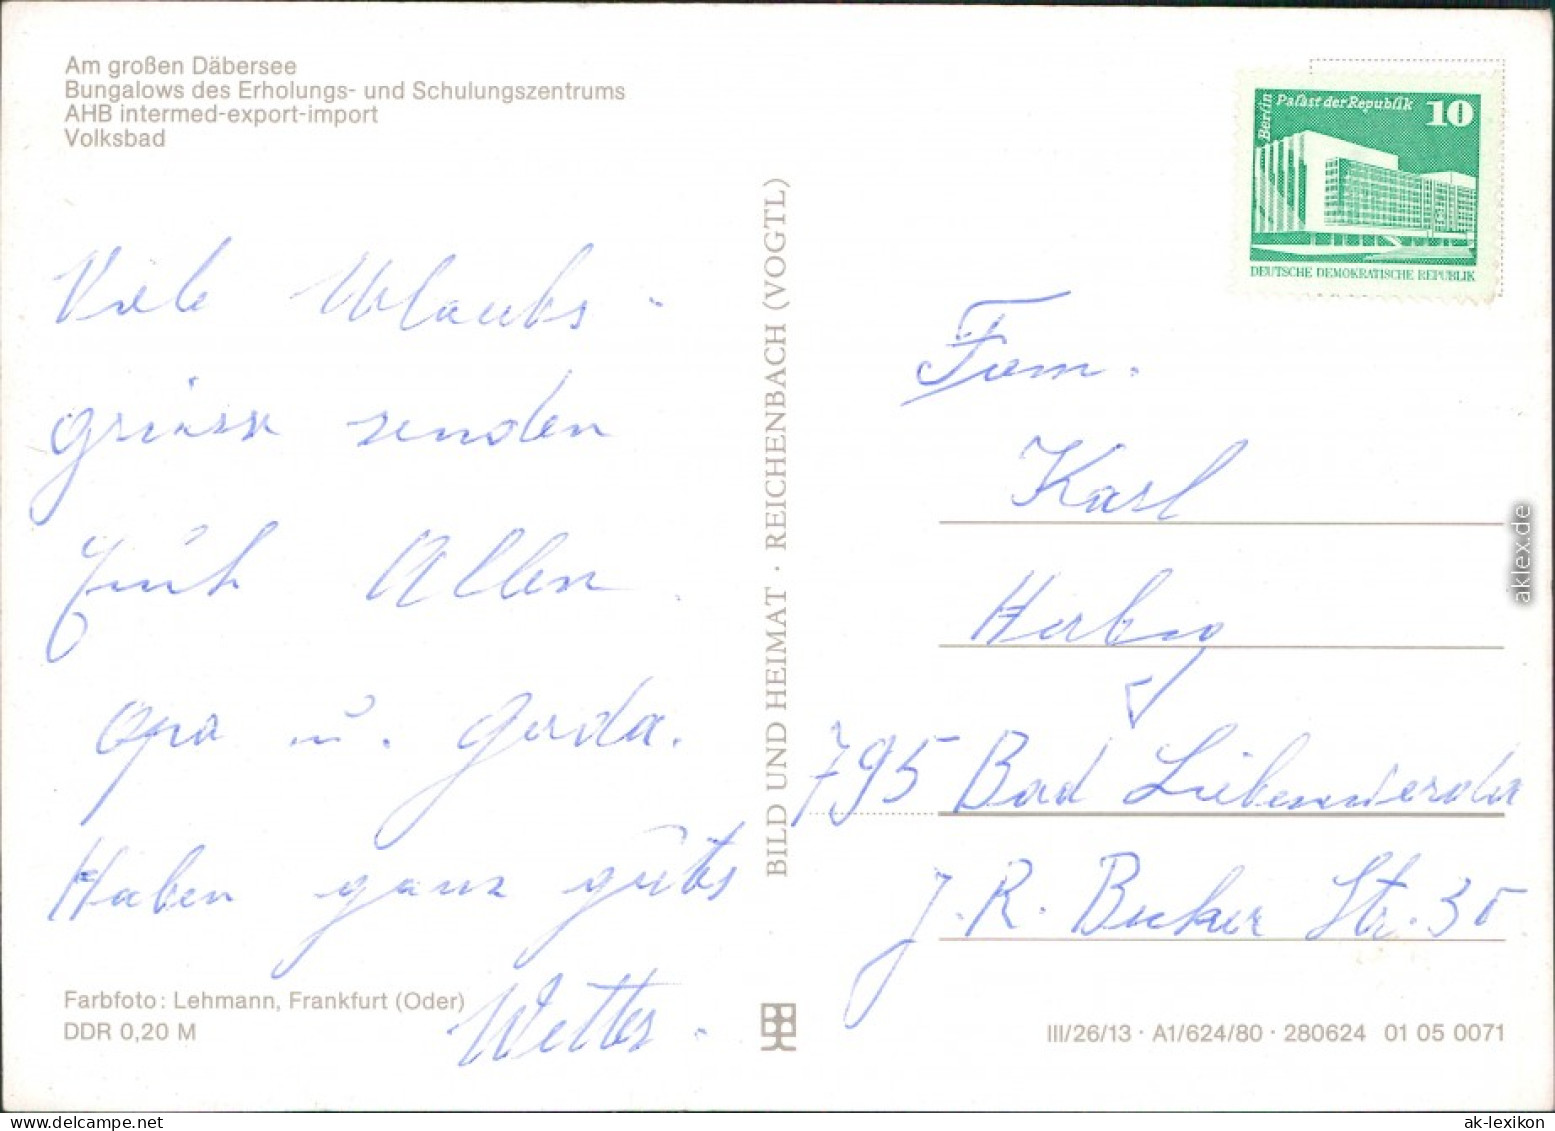 Am großen Däbersee
Bungalows des Erholungs- und Schulungszentrums
AHB intermed-export-import
Volksbad
Berlin
Palast der Republik 10
DEUTSCHE DEMOKRATISCHE REPUBLIK
Viele Urlaubs-
grüsse senden
Euch Allen
Opa u. Gerda.
Haben ganz gutes
Wetter.
BILD UND HEIMAT · REICHENBACH (VOGTL)
Fam.
Karl
Herbig
795 Bad Liebenwerda
J. R. Becher Str. 35
Farbfoto: Lehmann, Frankfurt (Oder)
DDR 0,20 M
III/26/13 · A1/624/80 · 280624 01 05 0071
aklex.de
ak-lexikon